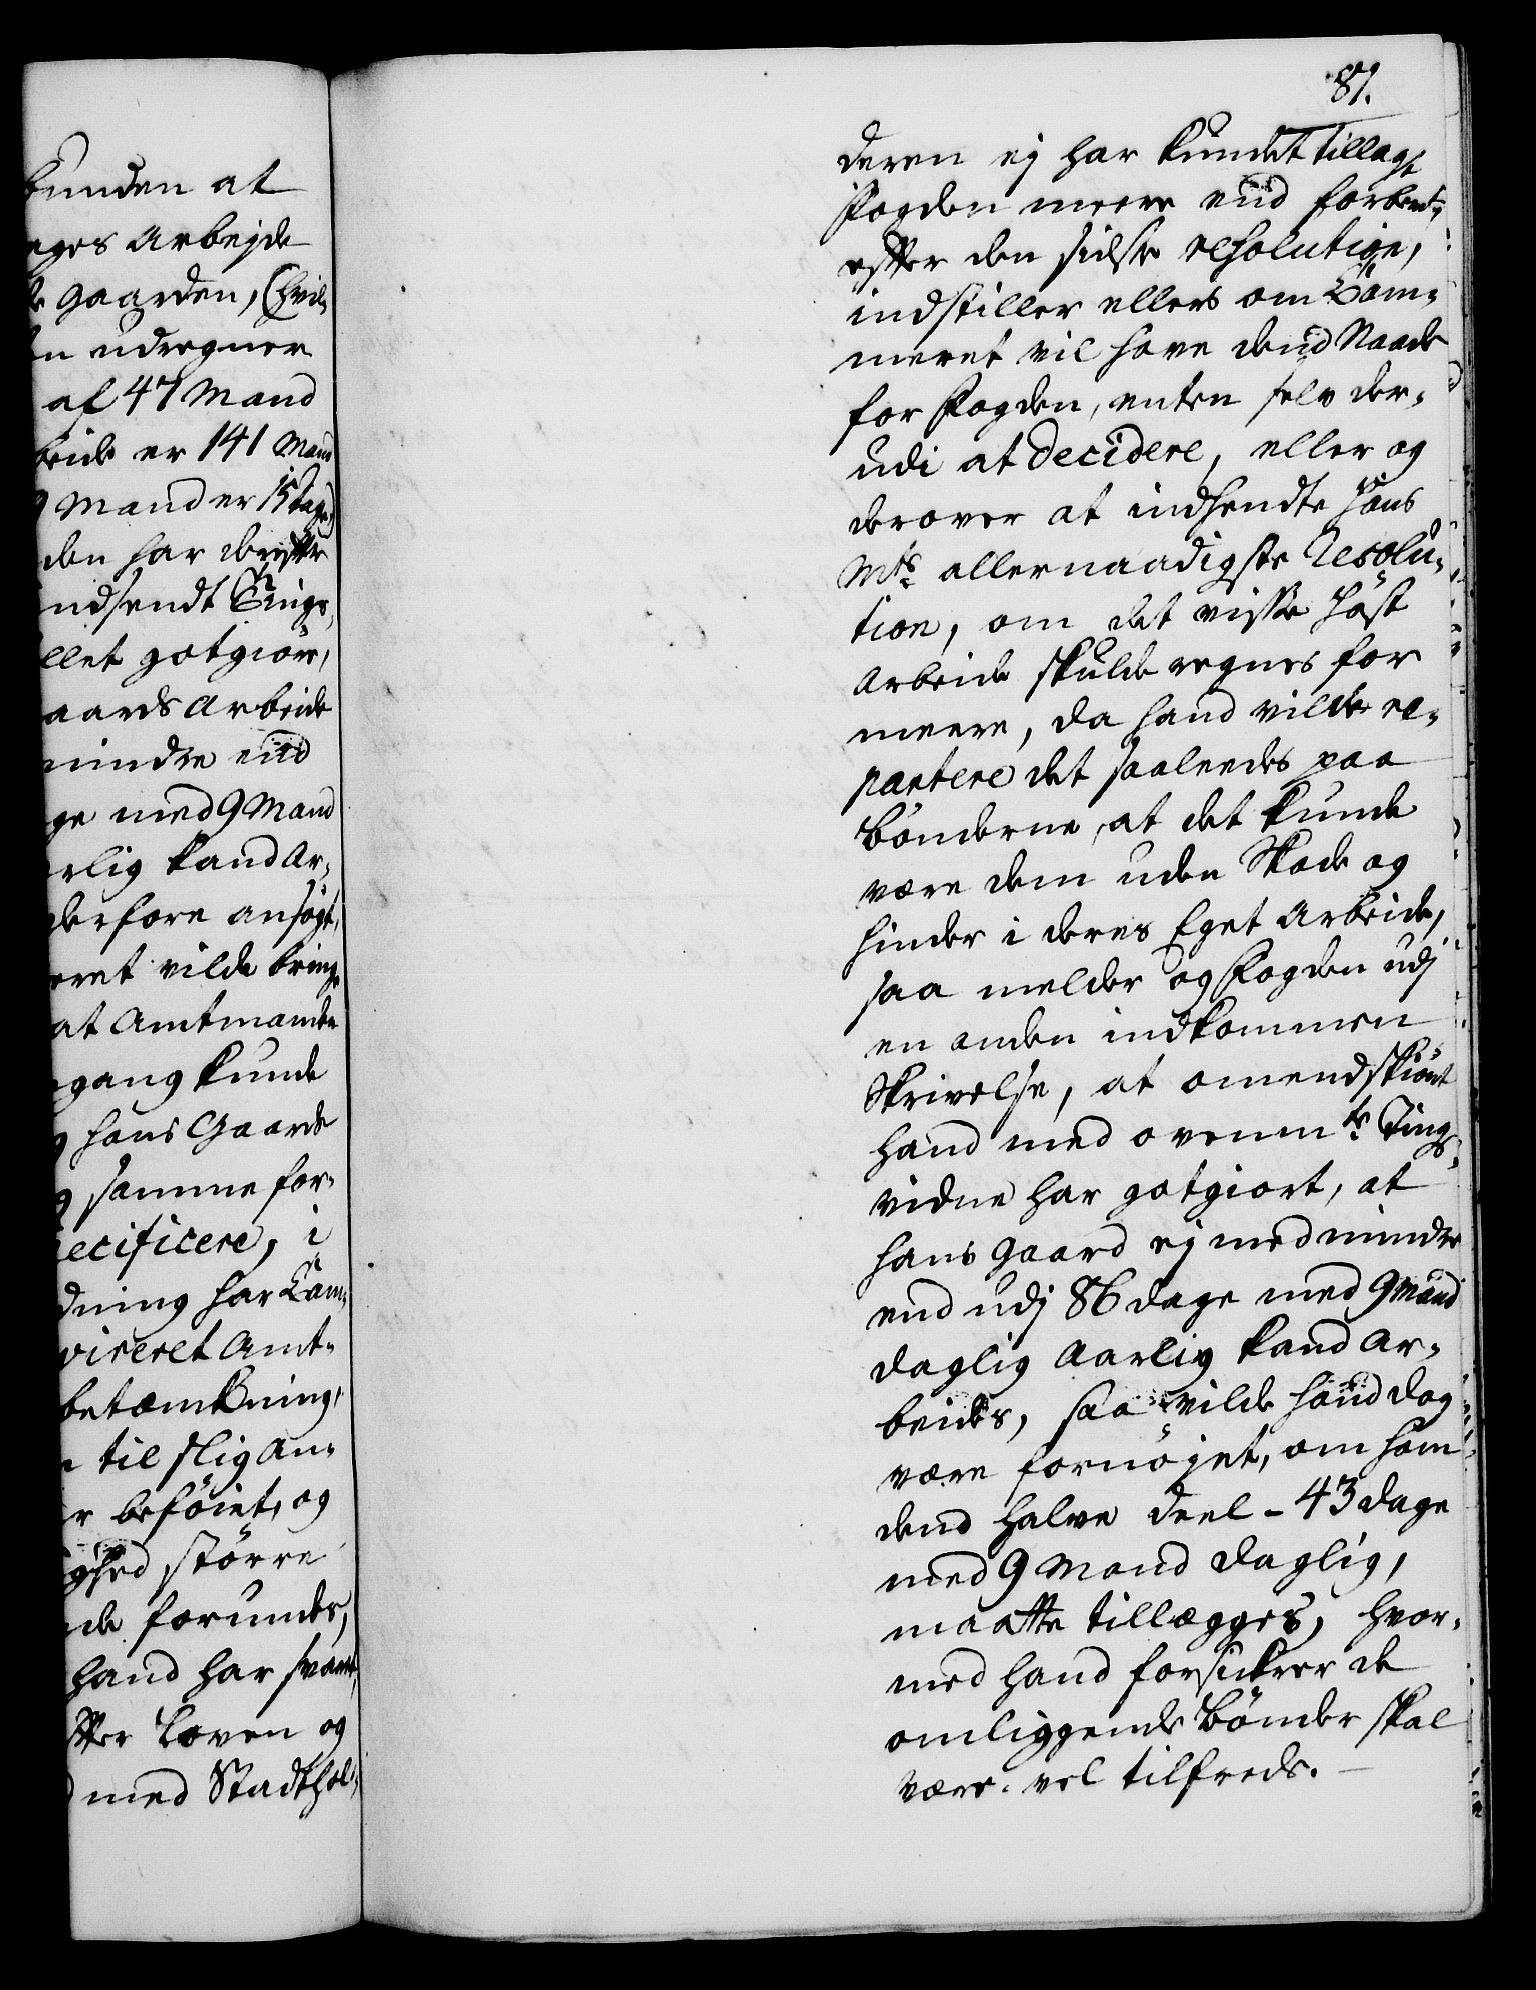 kunden at
eges Arbejde
gaarden, (hvil-
n udregner
af 47 Mand
beide er 141 Mand
Mand er 15 dage)
den har derefter
ndsendt Tings-
llet gotgiöre,
aards Arbeide
mindre end
ge med 9 Mand
rlig kand Ar-
derfore ansögt,
eret vilde bringe
at Amtmanden
gang kunde
hans Gaards
samme for-
ecificere, i
dning har Cam-
viseret Amt-
betænkning,
til slig An-
r beföiet, og
ghed större
de forundes,
hand har svaret,
fter Loven og
med Stadthol-
87.
deren ej har kundet tillagt
Fogden meere end forbemt
efter den sidste resolution,
indstiller ellers om Cam-
meret vil have dend Naade
for Fogden, enten selv der-
udi at decidere, eller og
derover at indhendte Hans
Mts allernaadigste Resolu-
tion, om det visse höst
Arbeide skulde regnes for
meere, da hand vilde re-
partere det saaleedes paa
bönderne, at det kunde
være dem uden Skade og
hinder i deres Eget Arbeide,
saa melder og Fogden udj
en anden indkommen
Skrivelse, at omendskiönt
hand med ovenmte Tings-
vidne har gotgiort, at
hans gaard ej med mindre
end udj 86 dage med 9 Mand
daglig Aarlig kand Ar-
beides, saa vilde hand dog
være fornöjet, om ham
dend halve deel - 43 dage
med 9 Mand daglig,
maatte tillægges, hvor-
med hand forsickrer de
omliggende bönder skal
være vel tilfreds. -